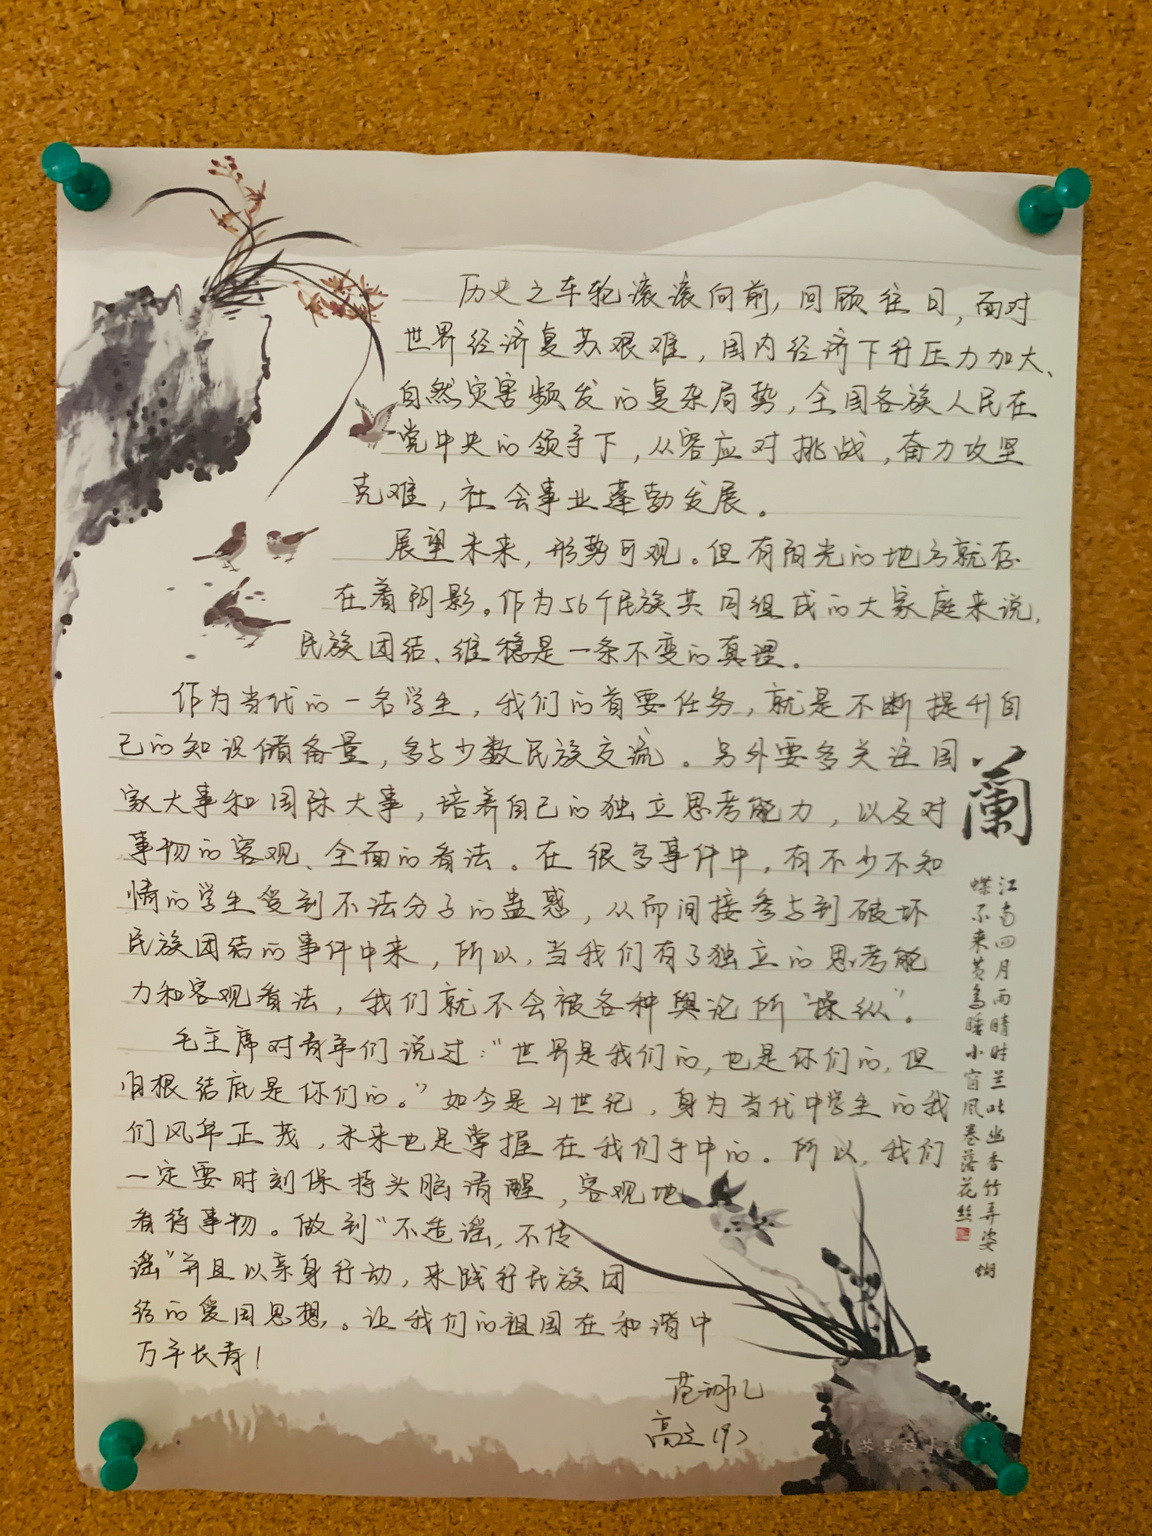 历史之车轮滚滚向前，回顾往日，面对
世界经济复苏艰难，国内经济下行压力加大、
自然灾害频发的复杂局势，全国各族人民在
党中央的领导下，从容应对挑战，奋力攻坚
克难，社会事业蓬勃发展。
展望未来，形势可观。但有阳光的地方就存
在着阴影。作为56个民族共同组成的大家庭来说，
民族团结、维稳是一条不变的真理。
作为当代的一名学生，我们的首要任务，就是不断提升自
己的知识储备量，多与少数民族交流。另外要多关注国
家大事和国际大事，培养自己的独立思考能力，以及对
事物的客观、全面的看法。在很多事件中，有不少不知
情的学生受到不法分子的蛊惑，从而间接参与到破坏
民族团结的事件中来，所以，当我们有了独立的思考能
力和客观看法，我们就不会被各种舆论所“操纵”。
毛主席对青年们说过：“世界是我们的，也是你们的，但
归根结底是你们的。”如今是21世纪，身为当代中学生的我
们风华正茂，未来也是掌握在我们手中的。所以，我们
一定要时刻保持头脑清醒，客观地
看待事物。做到“不造谣，不传
谣”并且以亲身行动，来践行民族团
结的爱国思想。让我们的祖国在和谐中
万年长青！
高三(9)
蘭
江南四月雨晴时兰吐幽香竹弄姿蝴
蝶不来黄鸟睡小窗风卷落花丝